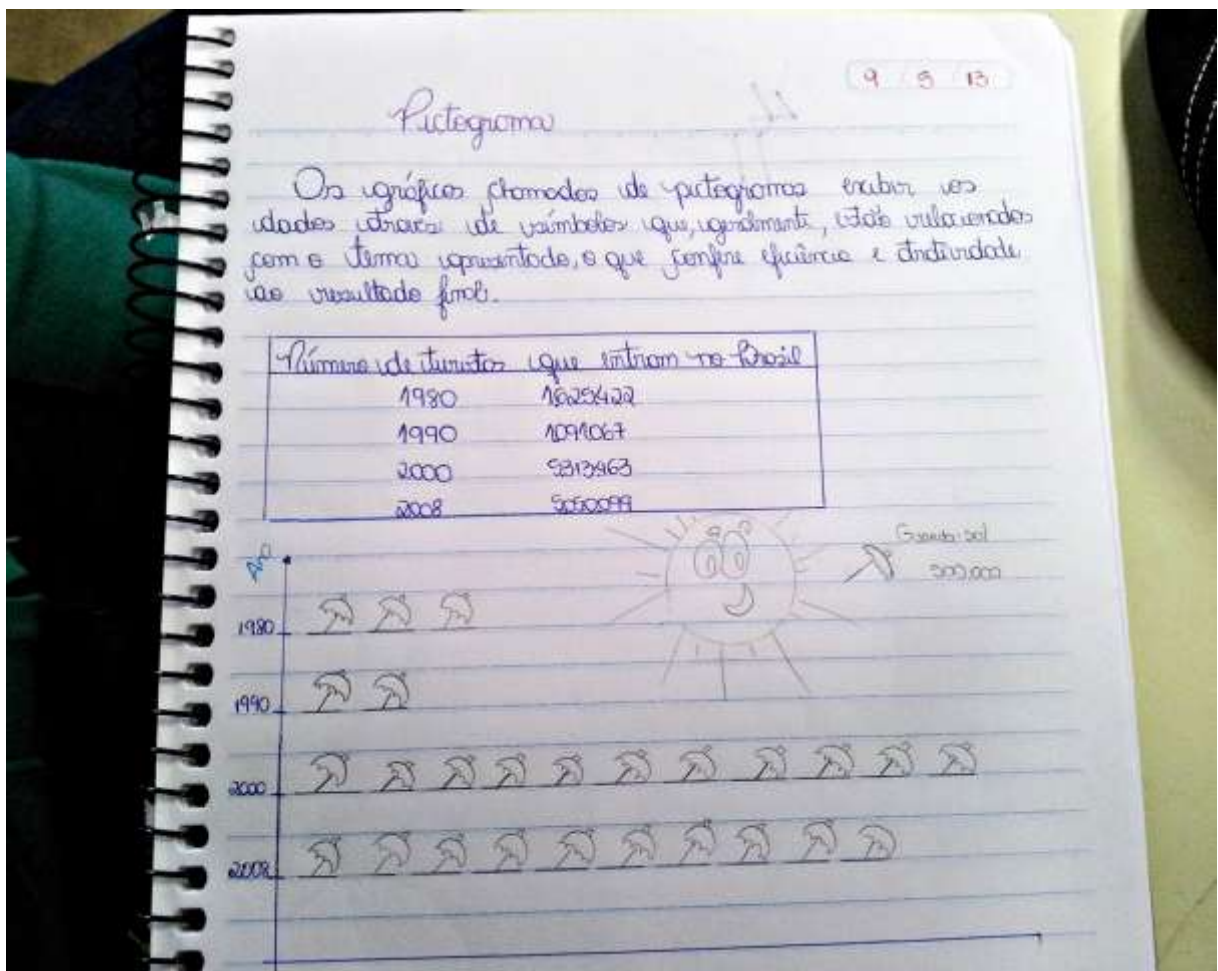 9 / 5 / 13
Pictograma
Os gráficos chamados de pictogramas exibir os
dados através de símbolos que, geralmente, estão relacionados
com o tema apresentado, o que confere eficiência e
ao resultado final.
Número de turistas que entram no Brasil
1980 1625422
1990 1091067
2000 5313463
2008 5050099
Guarda-sol
500,000
Ano
1980
1990
2000
2008